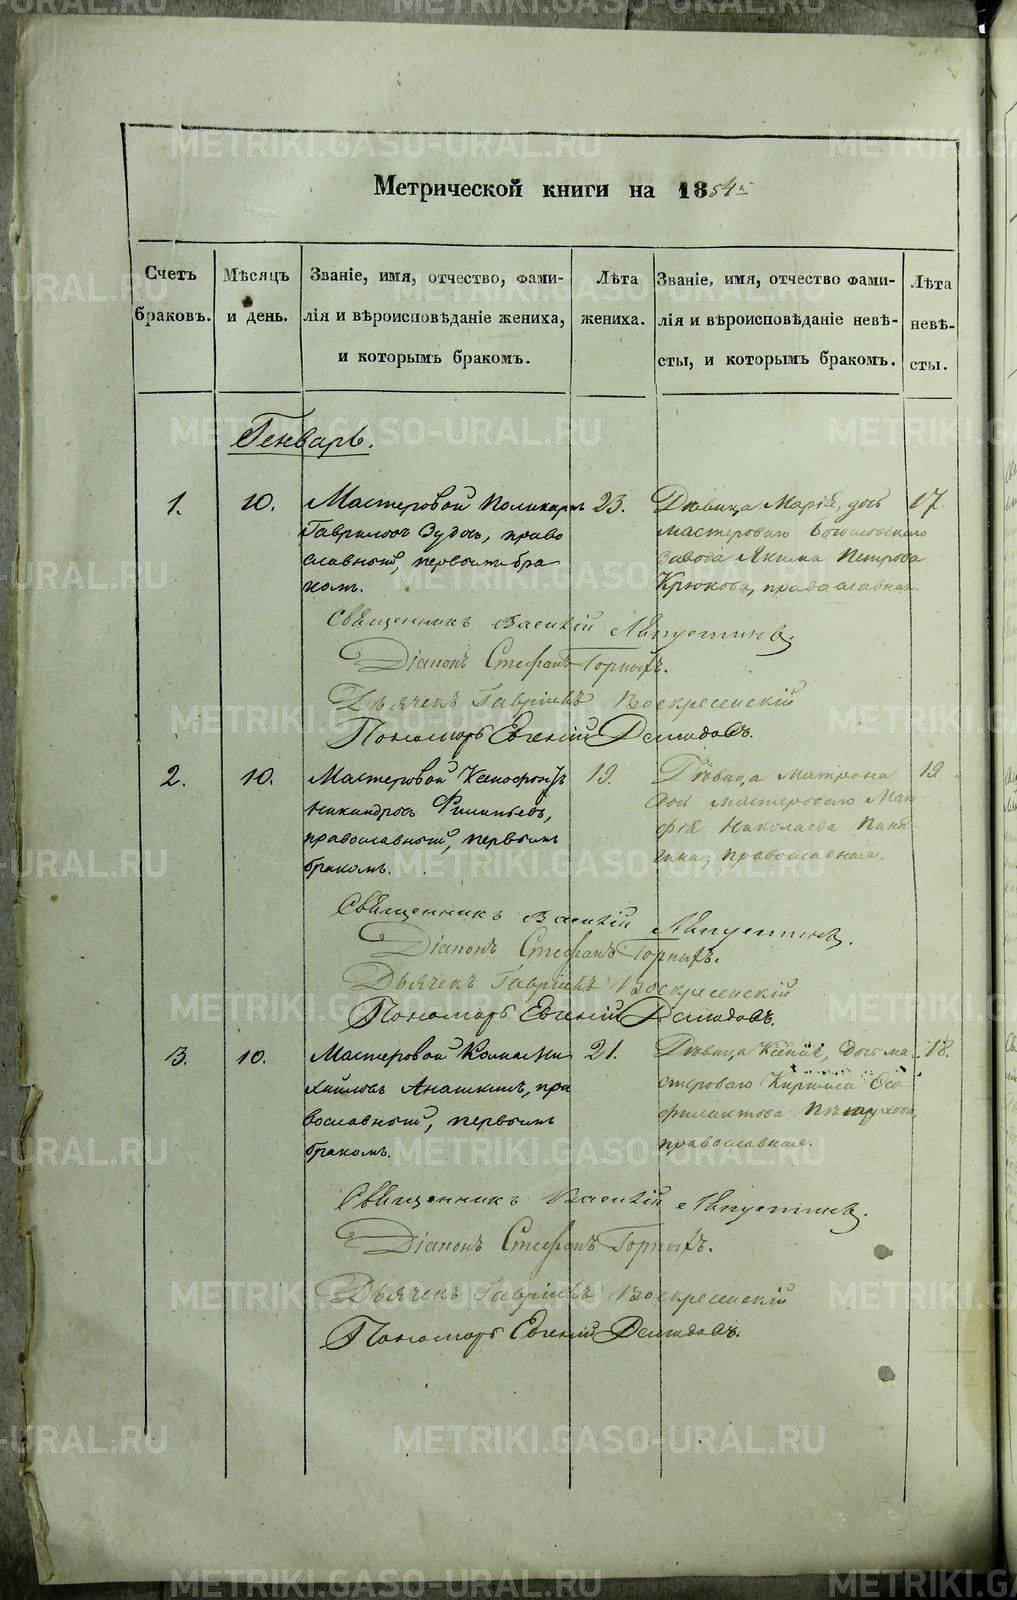 Метрической книги на 1854й
Счетъ браковъ.
Мѣсяцъ и день.
Званіе, имя, отчество, фами-
лія и вѣроисповѣданіе жениха,
и которымъ бракомъ.
Лѣта жениха.
Званіе, имя, отчество фами-
лія и вѣроисповѣданіе невѣ-
сты, и которымъ бракомъ.
Лѣта невѣ-
сты.
Генварь.
1.
10.
Мастеровой Поликарпъ
Гавриловъ Зудовъ, право
славный, первымъ бра
комъ.
23.
Дѣвица Марія, дочь
мастероваго Богословскаго
завода Якима Петрова
Крюкова, православная.
17.
Священникъ Василій Августиновъ.
Діаконъ Стефанъ Горныхъ.
Дьячекъ Гавріилъ Воскресенскій
Пономарь Евгеній Демидовъ.
2.
10.
Мастеровой Ксенофонтъ
Никандровъ Филипьевъ,
православный, первымъ
бракомъ.
19.
Дѣвица Матрона
дочь мастероваго
Николаева
православная.
19.
Священникъ Василій Августиновъ.
Діаконъ Стефанъ Горныхъ.
Дьячекъ Гавріилъ Воскресенскій
Пономарь Евгеній Демидовъ.
3.
10.
Мастеровой Козма Ми
хайловъ Анашкинъ, пра
вославный, первымъ
бракомъ.
21.
Дѣвица Ксенія, дочь ма-
стероваго Кирилла Ѳео
филактова Пѣтухова,
православная.
18.
Священникъ Василій Августиновъ.
Діаконъ Стефанъ Горныхъ.
Дьячекъ Гавріилъ Воскресенскій
Пономарь Евгеній Демидовъ.
METRIKI.GASO-URAL.RU